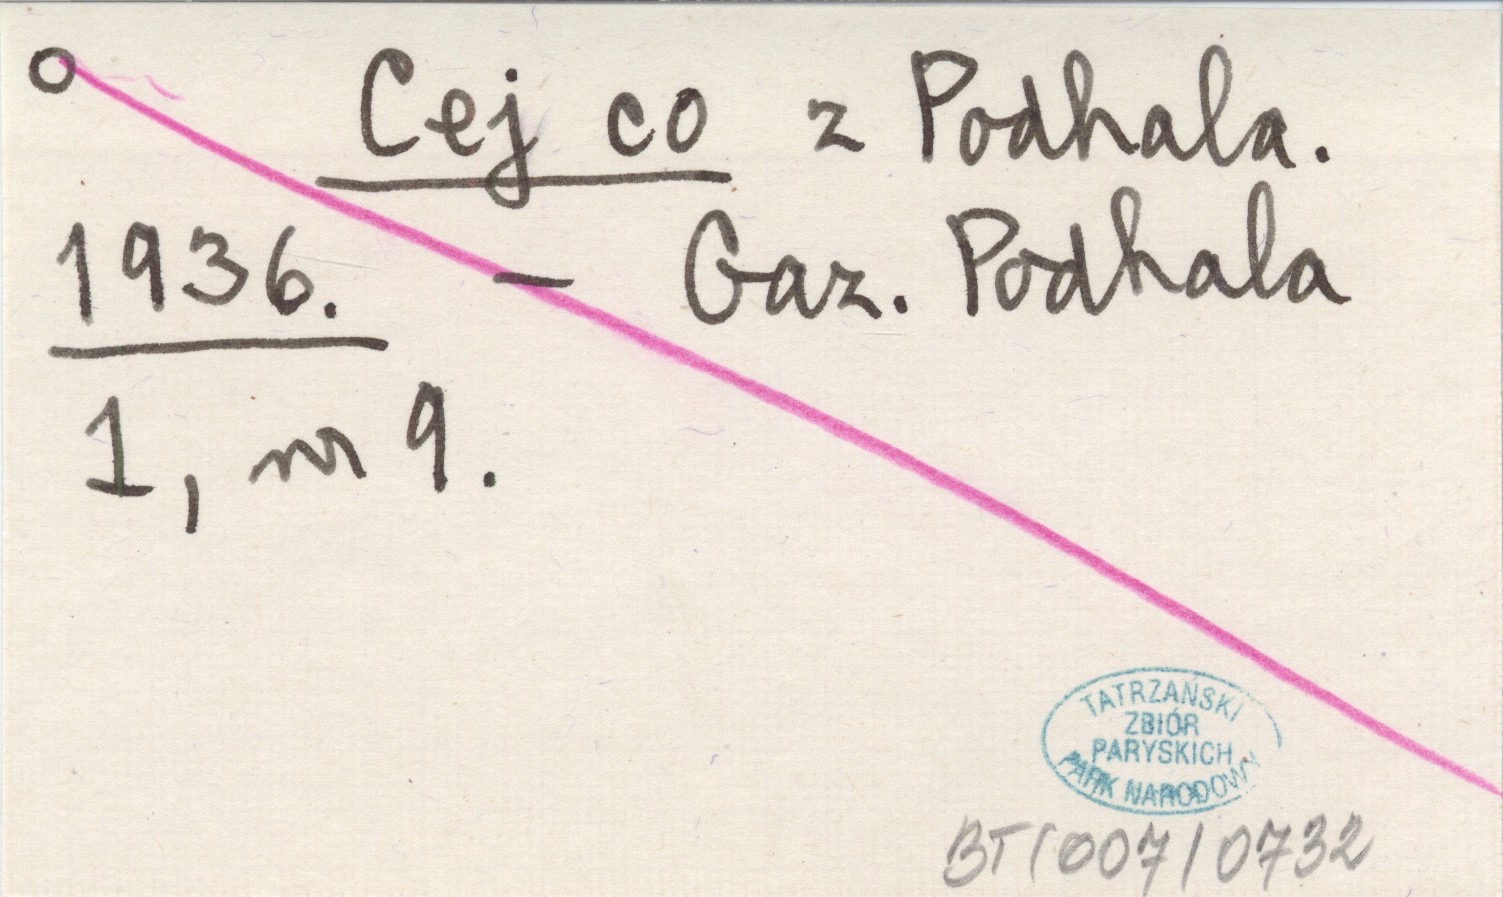 o Cej co z Podhala.
1936. – Gaz. Podhala
1, nr 9.
TATRZAŃSKI
ZBIÓR
PARYSKICH
PARK NARODOWY
BT/007/0732